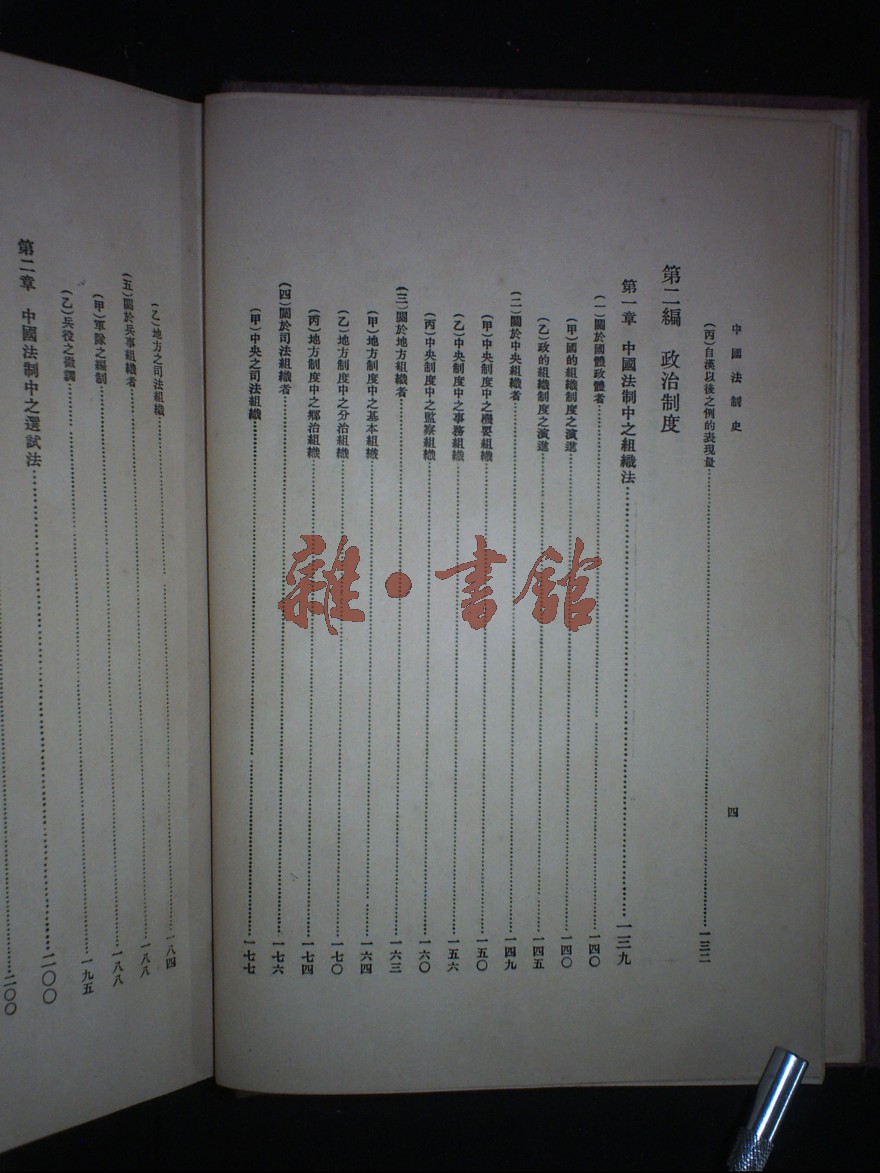 中國法制史
四
(丙)自漢以後之例的表現量……一三二
第二編 政治制度
第一章 中國法制中之組織法……一三九
(一)關於國體政體者……一四〇
(甲)國的組織制度之演進……一四〇
(乙)政的組織制度之演進……一四五
(二)關於中央組織者……一四九
(甲)中央制度中之機要組織……一五〇
(乙)中央制度中之事務組織……一五六
(丙)中央制度中之監察組織……一六〇
(三)關於地方組織者……一六三
(甲)地方制度中之基本組織……一六四
(乙)地方制度中之分治組織……一七〇
(丙)地方制度中之鄉治組織……一七四
(四)關於司法組織者……一七六
(甲)中央之司法組織……一七七
(乙)地方之司法組織……一八四
(五)關於兵事組織者……一八八
(甲)軍隊之編制……一八八
(乙)兵役之徵調……一九五
第二章 中國法制中之選試法……二〇〇
二〇〇
雜·書館